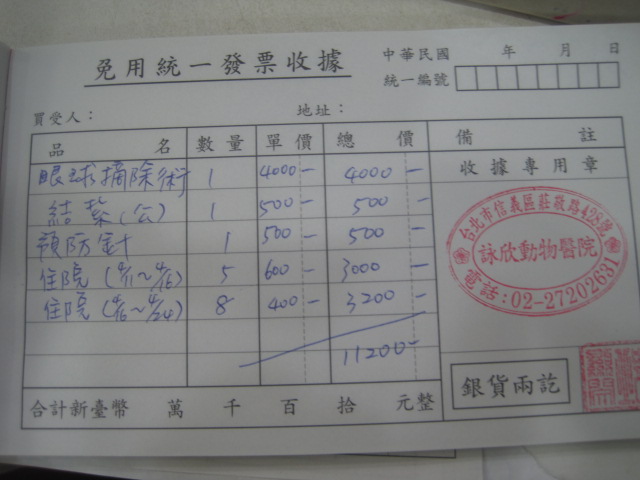 免用統一發票收據
中華民國 年 月 日
統一編號
買受人：
地址：
品 名 數 量 單 價 總 價 備 註
眼球摘除術 1 4000- 4000-
結紮(公) 1 500- 500-
預防針 1 500- 500-
住院 (4/11~4/16) 5 600- 3000-
住院 (4/16~4/24) 8 400- 3200-
11200-
收據專用章
台北市信義區莊敬路428號
詠欣動物醫院
電話:02-27202631
銀貨兩訖
合計新臺幣 萬 千 百 拾 元整